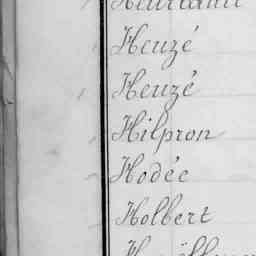 Heuzé
Heuzé
Hilpron
Hodée
Holbert